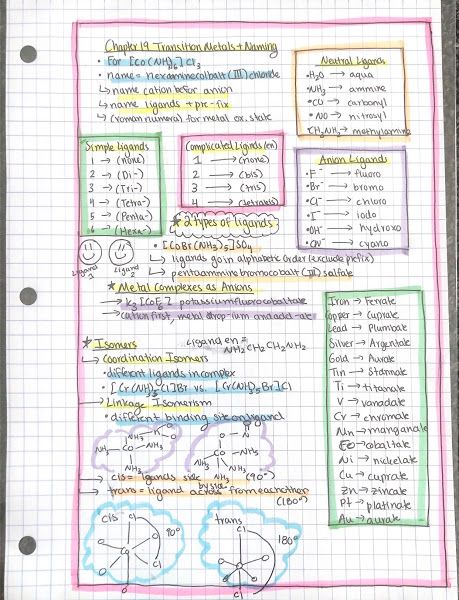 Chapter 19 Transition Metals + Naming
• For [Co(NH3)6]Cl3
• name = hexaminecolbalt(III) chloride
↳ name cation before anion
↳ name ligands + pre-fix
↳ (roman numeral) for metal ox. state
Neutral Ligands
• H2O → aqua
• NH3 → ammine
• CO → carbonyl
• NO → nitrosyl
CH3NH2 → methylamine
Simple Ligands
1 → (none)
2 → (Di-)
3 → (Tri-)
4 → (Tetra-)
5 → (Penta-)
6 → (Hexa-)
Complicated Ligands (en)
1 → (none)
2 → (bis)
3 → (tris)
4 → (tetrakis)
Anion Ligands
• F⁻ → fluoro
• Br⁻ → bromo
• Cl⁻ → chloro
• I⁻ → iodo
• OH⁻ → hydroxo
• CN⁻ → cyano
★ 2 types of ligands
Ligand 1
Ligand 2
• [CoBr(NH3)5]SO4
↳ ligands go in alphabetic order (exclude prefix)
↳ pentaamminebromocobalt (III) sulfate
★ Metal Complexes as Anions
→ K3[CoF6] potassium fluorocobaltate
↳ cation first, metal drop -ium and add -ate
★ Isomers
ligand en =
NH2CH2CH2NH2
↳ Coordination Isomers
• different ligands in complex
• [Cr(NH3)5Cl]Br vs. [Cr(NH3)5Br]Cl
→ Linkage Isomerism
• different binding site on ligand
NH3
NH3
Co
NH3
NH3
O
O
O
N
NH3
Co
NH3
NH3
NH3
→ cis = ligands side by side (90°)
→ trans = ligand across from eachother
(180°)
cis
Cl
Cl
90°
Co
trans
Cl
180°
Cl
Iron → Ferrate
Copper → Cuprate
Lead → Plumbate
Silver → Argentate
Gold → Aurate
Tin → Stannate
Ti → titanate
V → vanadate
Cr → chromate
Mn → manganate
Co → cobaltate
Ni → nickelate
Cu → cuprate
Zn → zincate
Pt → platinate
Au → aurate